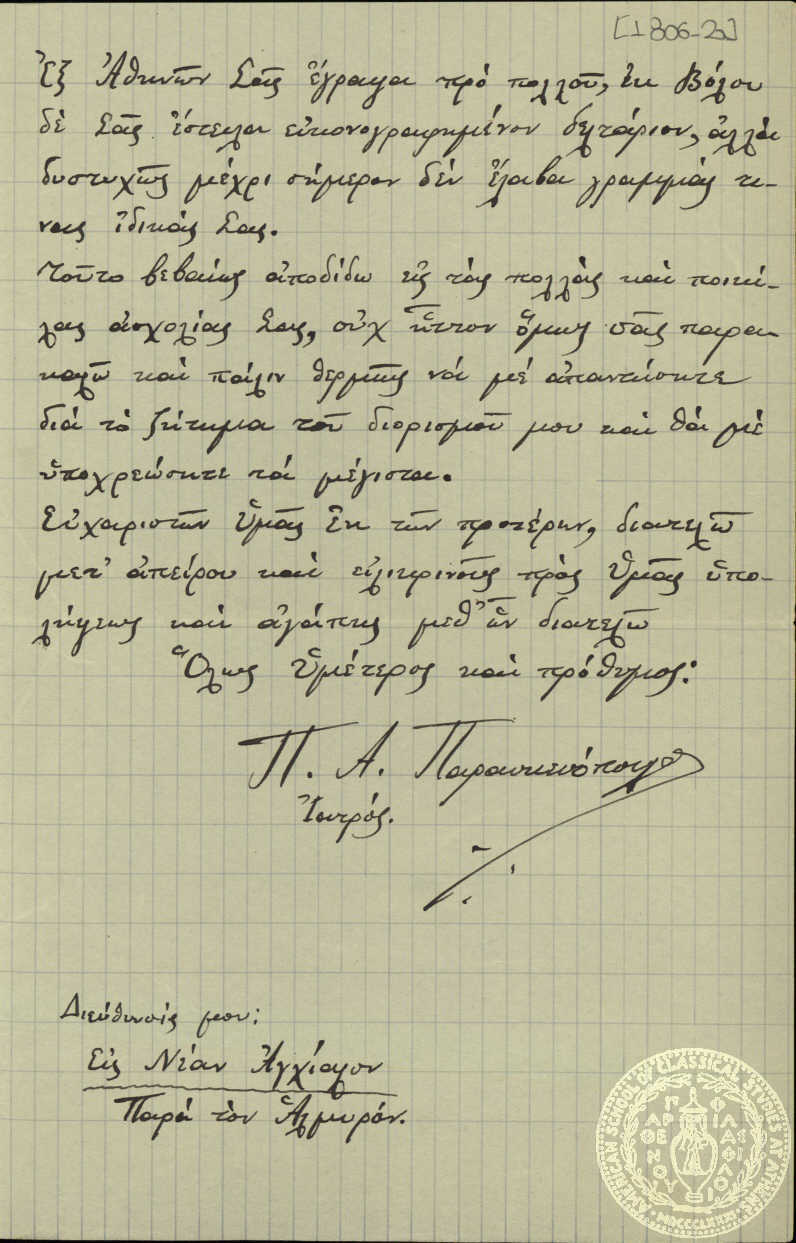 [1306-2α]
Ἐξ Ἀθηνῶν Σᾶς ἔγραψα πρὸ πολλοῦ, ἐκ Βόλου
δὲ Σᾶς ἔστειλα εἰκονογραφημένον δελτάριον, ἀλλὰ
δυστυχῶς μέχρι σήμερον δὲν ἔλαβα γραμμάς τι-
νας ἰδικάς Σας.
Τοῦτο βεβαίως ἀποδίδω εἰς τὰς πολλὰς καὶ ποικί-
λας ἀσχολίας Σας, οὐχ ἧττον ὅμως σᾶς παρα-
καλῶ καὶ πάλιν θερμῶς νὰ μὲ ἀπαντήσητε
διὰ τὸ ζήτημα τοῦ διορισμοῦ μου καὶ θὰ μὲ
ὑποχρεώσητε τὰ μέγιστα.
Εὐχαριστῶν Ὑμᾶς ἐκ τῶν προτέρων, διατελῶ
μετ' ἀπείρου καὶ εἰλικρινοῦς πρὸς Ὑμᾶς ὑπο-
λήψεως καὶ ἀγάπης μεθ' ὧν διατελῶ
Ὅλως Ὑμέτερος καὶ πρόθυμος:
Π. Α. Παρασκευόπουλος
Ἰατρός.
Διεύθυνσίς μου:
Εἰς Νέαν Ἀγχίαλον
Παρὰ τὸν Ἁλμυρόν.
AMERICAN SCHOOL OF CLASSICAL STUDIES AT ATHENS
ΠΑΡΘΕΝΟΥ ΦΙΛΑΣ ΦΙΛΟΙ
MDCCCLXXXI